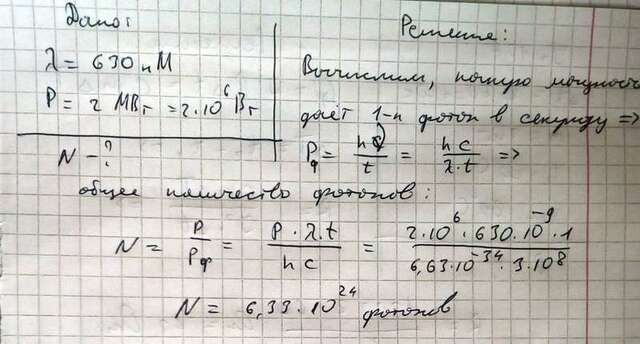 Дано:
λ = 630 нМ
P = 2 МВт = 2·10⁶ Вт
N - ?
Решение:
Вычислим, какую мощность
даёт 1-н фотон в секунду =>
Pф = hν/t = hc/λ·t =>
общее количество фотонов:
N = P/Pф = P·λ·t/hc = 2·10⁶·630·10⁻⁹·1/6,63·10⁻³⁴·3·10⁸
N = 6,33·10²⁴ фотонов